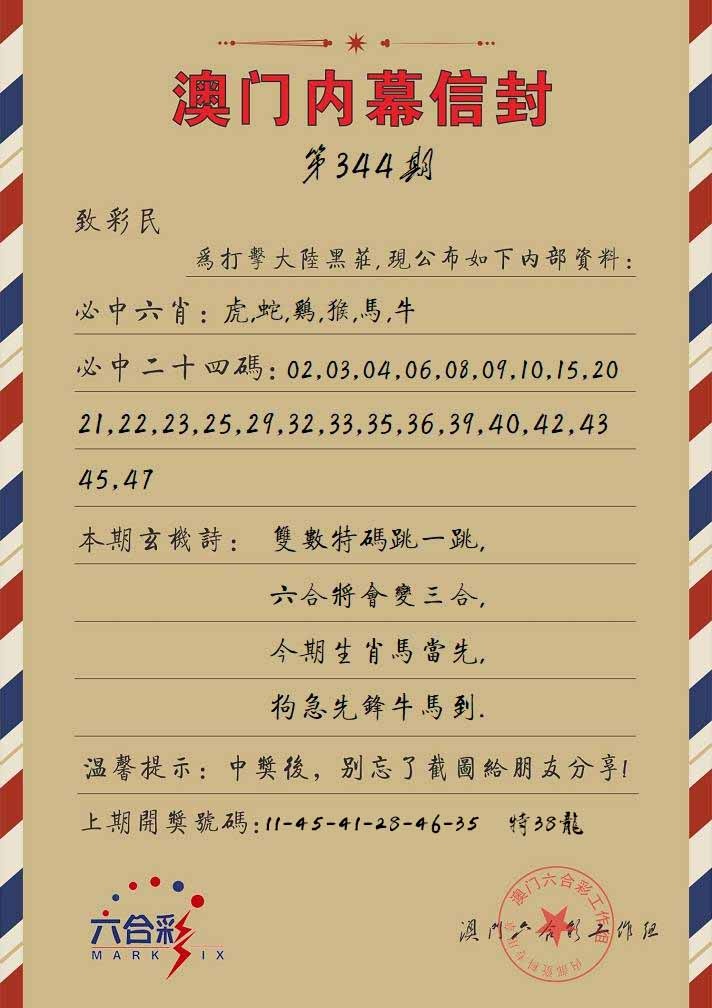 澳门内幕信封
第344期
致彩民
爲打擊大陸黑莊,現公布如下内部資料:
必中六肖:虎,蛇,鷄,猴,馬,牛
必中二十四碼:02,03,04,06,08,09,10,15,20
21,22,23,25,29,32,33,35,36,39,40,42,43
45,47
本期玄機詩: 雙數特碼跳一跳,
六合將會變三合,
今期生肖馬當先,
狗急先鋒牛馬到.
温馨提示:中獎後,别忘了截圖給朋友分享!
上期開獎號碼:11-45-41-28-46-35 特38龍
六合彩
MARK SIX
澳门六合彩工作组
澳门六合彩工作组
内部资料专用章